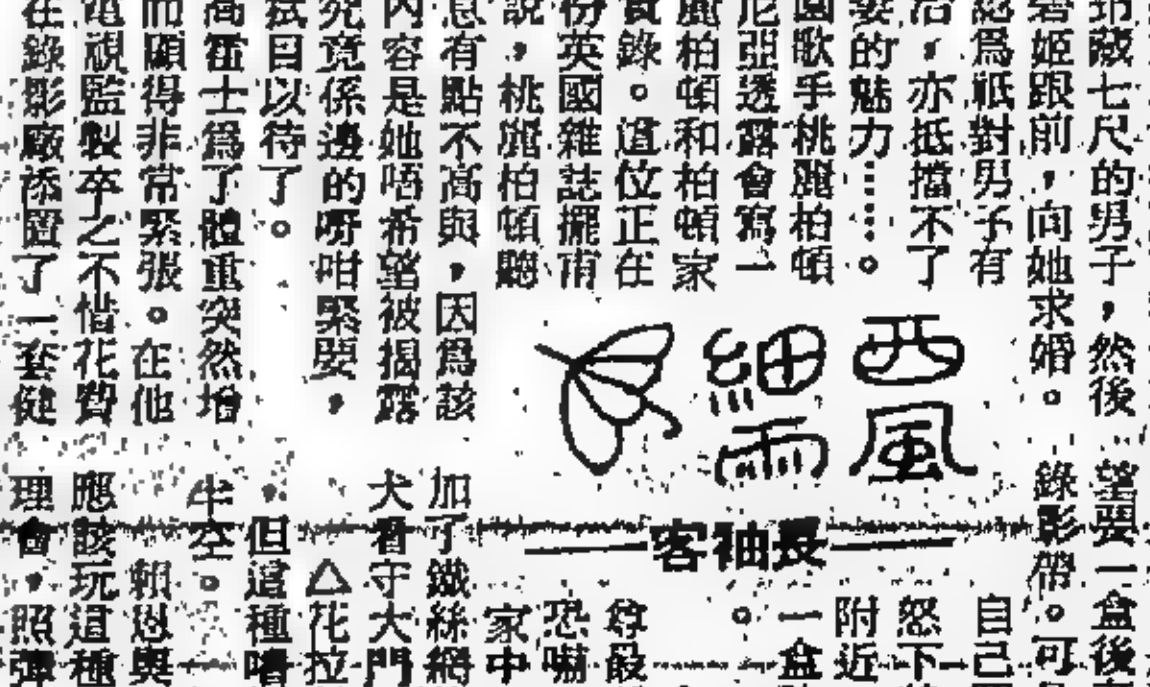 藏七尺的男子，然後
姬跟前，向她求婚。
認爲祇對男子有
亦抵擋不了
的魅力……。
歌手桃麗柏頓
尼亞透露會寫一
麗柏頓和柏頓家
錄。這位正在
份英國雜誌擺甫
說，桃麗柏頓聽
息有點不高興，因爲該
內容是她唔希望被揭露
究竟係邊的呀咁緊要，
拭目以待了。
高霍士爲了體重突然增
而顯得非常緊張。在他
電視監製卒之不惜花費
在錄影廠添置了一套健
西風
細雨
長袖客
望要一盒後
錄影帶。可
自己
怒下
附近
一盒
。
尊嚴
恐嚇
家中
加了鐵絲網
犬看守大門
△花拉
但這種
半空。
賴恩與
應該玩這種
理會，照彈